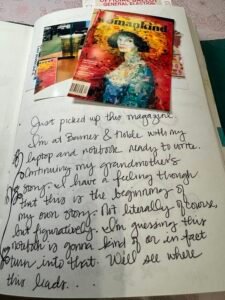 OFFICIAL BALLOT
GENERAL ELECTION
omankind
Just picked up this magazine.
I'm at Barnes & Noble with my
laptop and notebook ready to write.
Continuing my grandmother's
story. I have a feeling though
that this is the beginning of
my own story. Not literally of course,
but figuratively. I'm guessing this
notebook is gonna kind of or in fact
turn into that. Will see where
this leads...